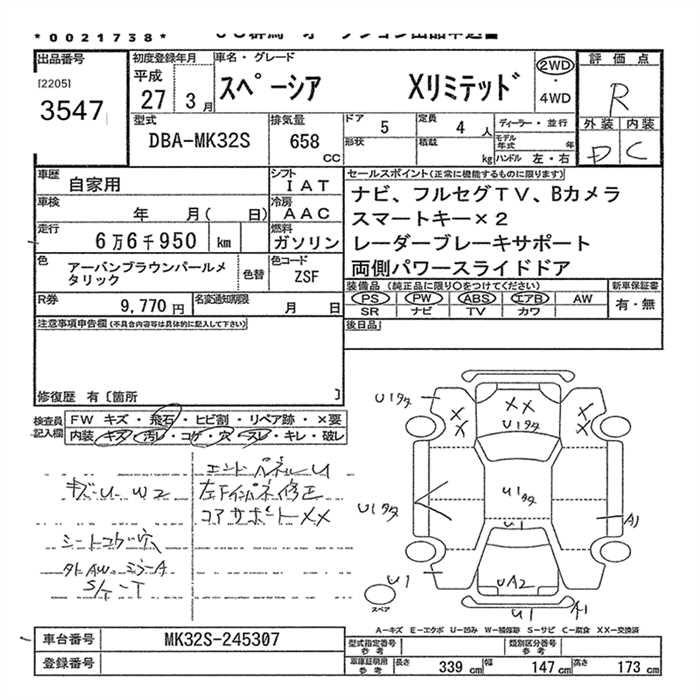 *0021738*
出品番号
[2205]
3547
初度登録年月
平成
27 3月
車名・グレード
スペーシア Xリミテッド
2WD
4WD
評価点
R
外装 内装
D C
型式
DBA-MK32S
排気量
658
CC
ドア 5
定員 4 人
形状
積載 kg
ディーラー・並行
モデル年式 年
ハンドル 左・右
車歴
自家用
シフト
IAT
車検
年 月( 日)
冷房
AAC
走行
6万6千950 km
燃料
ガソリン
色
アーバンブラウンパールメ
タリック
色替
色コード
ZSF
R券
9,770円
名変通知期限
月 日
セールスポイント(正常に機能するものに限ります)
ナビ、フルセグTV、Bカメラ
スマートキー×2
レーダーブレーキサポート
両側パワースライドドア
装備品(純正品に限り○をつけてください)
PS PW ABS エアB AW
SR ナビ TV カワ
新車保証書
有・無
後日品
注意事項申告欄(不具合内容等は具体的に記入して下さい)
修復歴 有〔箇所 〕
検査員
記入欄
FW キズ・飛石・ヒビ割・リペア跡・×要
内装 キズ・汚レ・コゲ・穴・スレ・キレ・破レ
キズ・U W2
シートコゲ穴
外AWミラーA
S/T-T
エンドパネルU
左下インパネ修正
コアサポートXX
U1タタ
XX
U1タタ
U1タタ
U1タタ
U1
A1
U1
UA2
U1
A1
スペア
A―キズ E―エクボ U―凹み W―補修跡 S―サビ C―腐食 XX―交換済
車台番号
MK32S-245307
登録番号
型式指定番号
参考
類別区分番号
参考
車庫証明用
参考
長さ 339 cm
幅 147 cm
高さ 173 cm